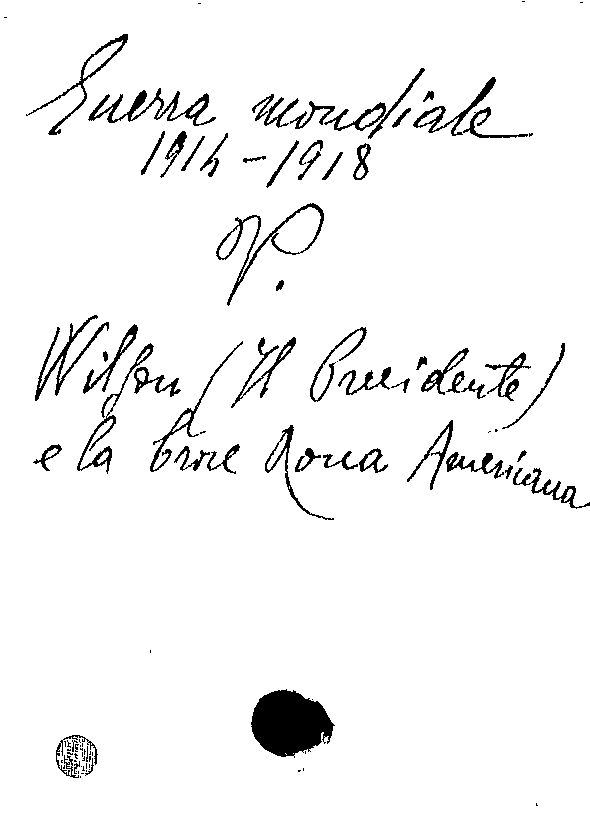 Guerra mondiale
1914-1918
V.
Wilson (Il Presidente)
e la Croce Rossa Americana